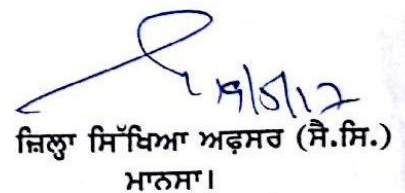 19/5/17
ਜ਼ਿਲ੍ਹਾ ਸਿੱਖਿਆ ਅਫ਼ਸਰ (ਸੈ.ਸਿ.)
ਮਾਨਸਾ।